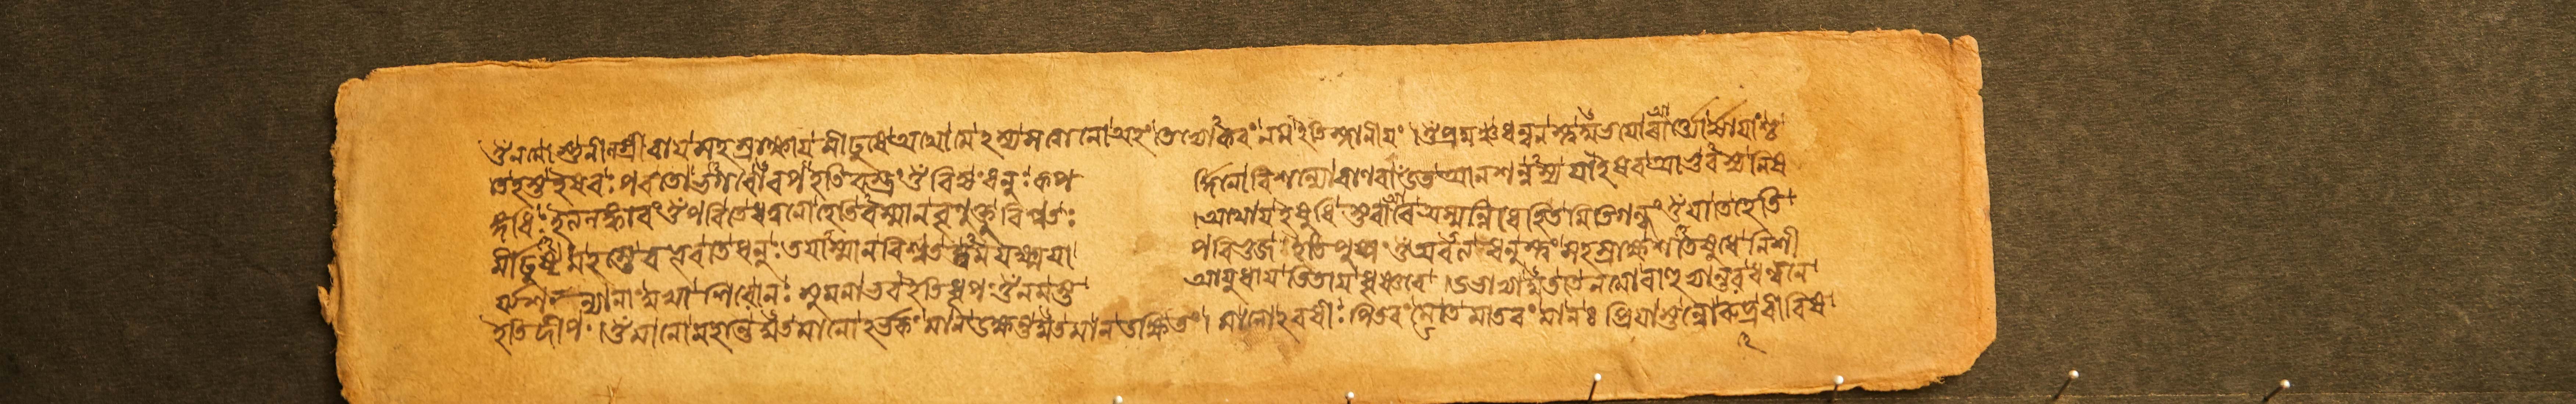 ওঁ নমোস্তু নীলগ্রীবায় সহস্রাক্ষায় মীঢুষে অথো যে অস্য সত্বানো অহং তেভ্যোকরং নম ইতি স্নানীয়ং ।ওঁ প্রমুঞ্চ ধন্বনস্ত্বমুভয়োরার্ত্ন্যোর্জ্যাং যাশ্চ
তে হস্ত ইষবঃ পরাতা ভগবো বপ ইতি বস্ত্রং ওঁ বিজ্যং ধনুঃ কপর্দ্দিনো বিশল্যো বাণবাঁ উত অনেশন্নস্য যা ইষব আভুরস্য নিষ
ঙ্গধিঃ ইত্যলঙ্কারং ওঁ পরি তে ধন্বনো হেতিরস্মান বৃণক্তু বিশ্বতঃ ।অথো য ইষুধিস্তবারে অস্মন্নিধেহি তমিতি গন্ধং ওঁ যা তে হেতি
র্মীঢুষ্টম হস্তে বভূব তে ধনুঃ তয়াস্মান বিশ্বতস্ত্বমযক্ষ্ময়া পরিভুজ ইতি পুষ্পং ওঁ অবতত্য ধনুস্ত্বং সহস্রাক্ষ শতেষুধে নিশী
র্য্য শল্যানাং মুখা শিবো নঃ সুমনা ভব ইতি ধূপং ওঁ নমস্ত আয়ুধায় ধৃষ্ণবে ।উভাভ্যামুত তে নমো বাহুভ্যান্তব ধন্বনে
ইতি দীপং ।ওঁ মা নো মহান্তমুত মা নো অর্ভকং মা ন উক্ষন্তমুত মা ন উক্ষিতং। মা নো বধীঃ পিতরং মোত মাতরং মা নঃ প্রিয়াস্তন্বো রুদ্র রীরিষ